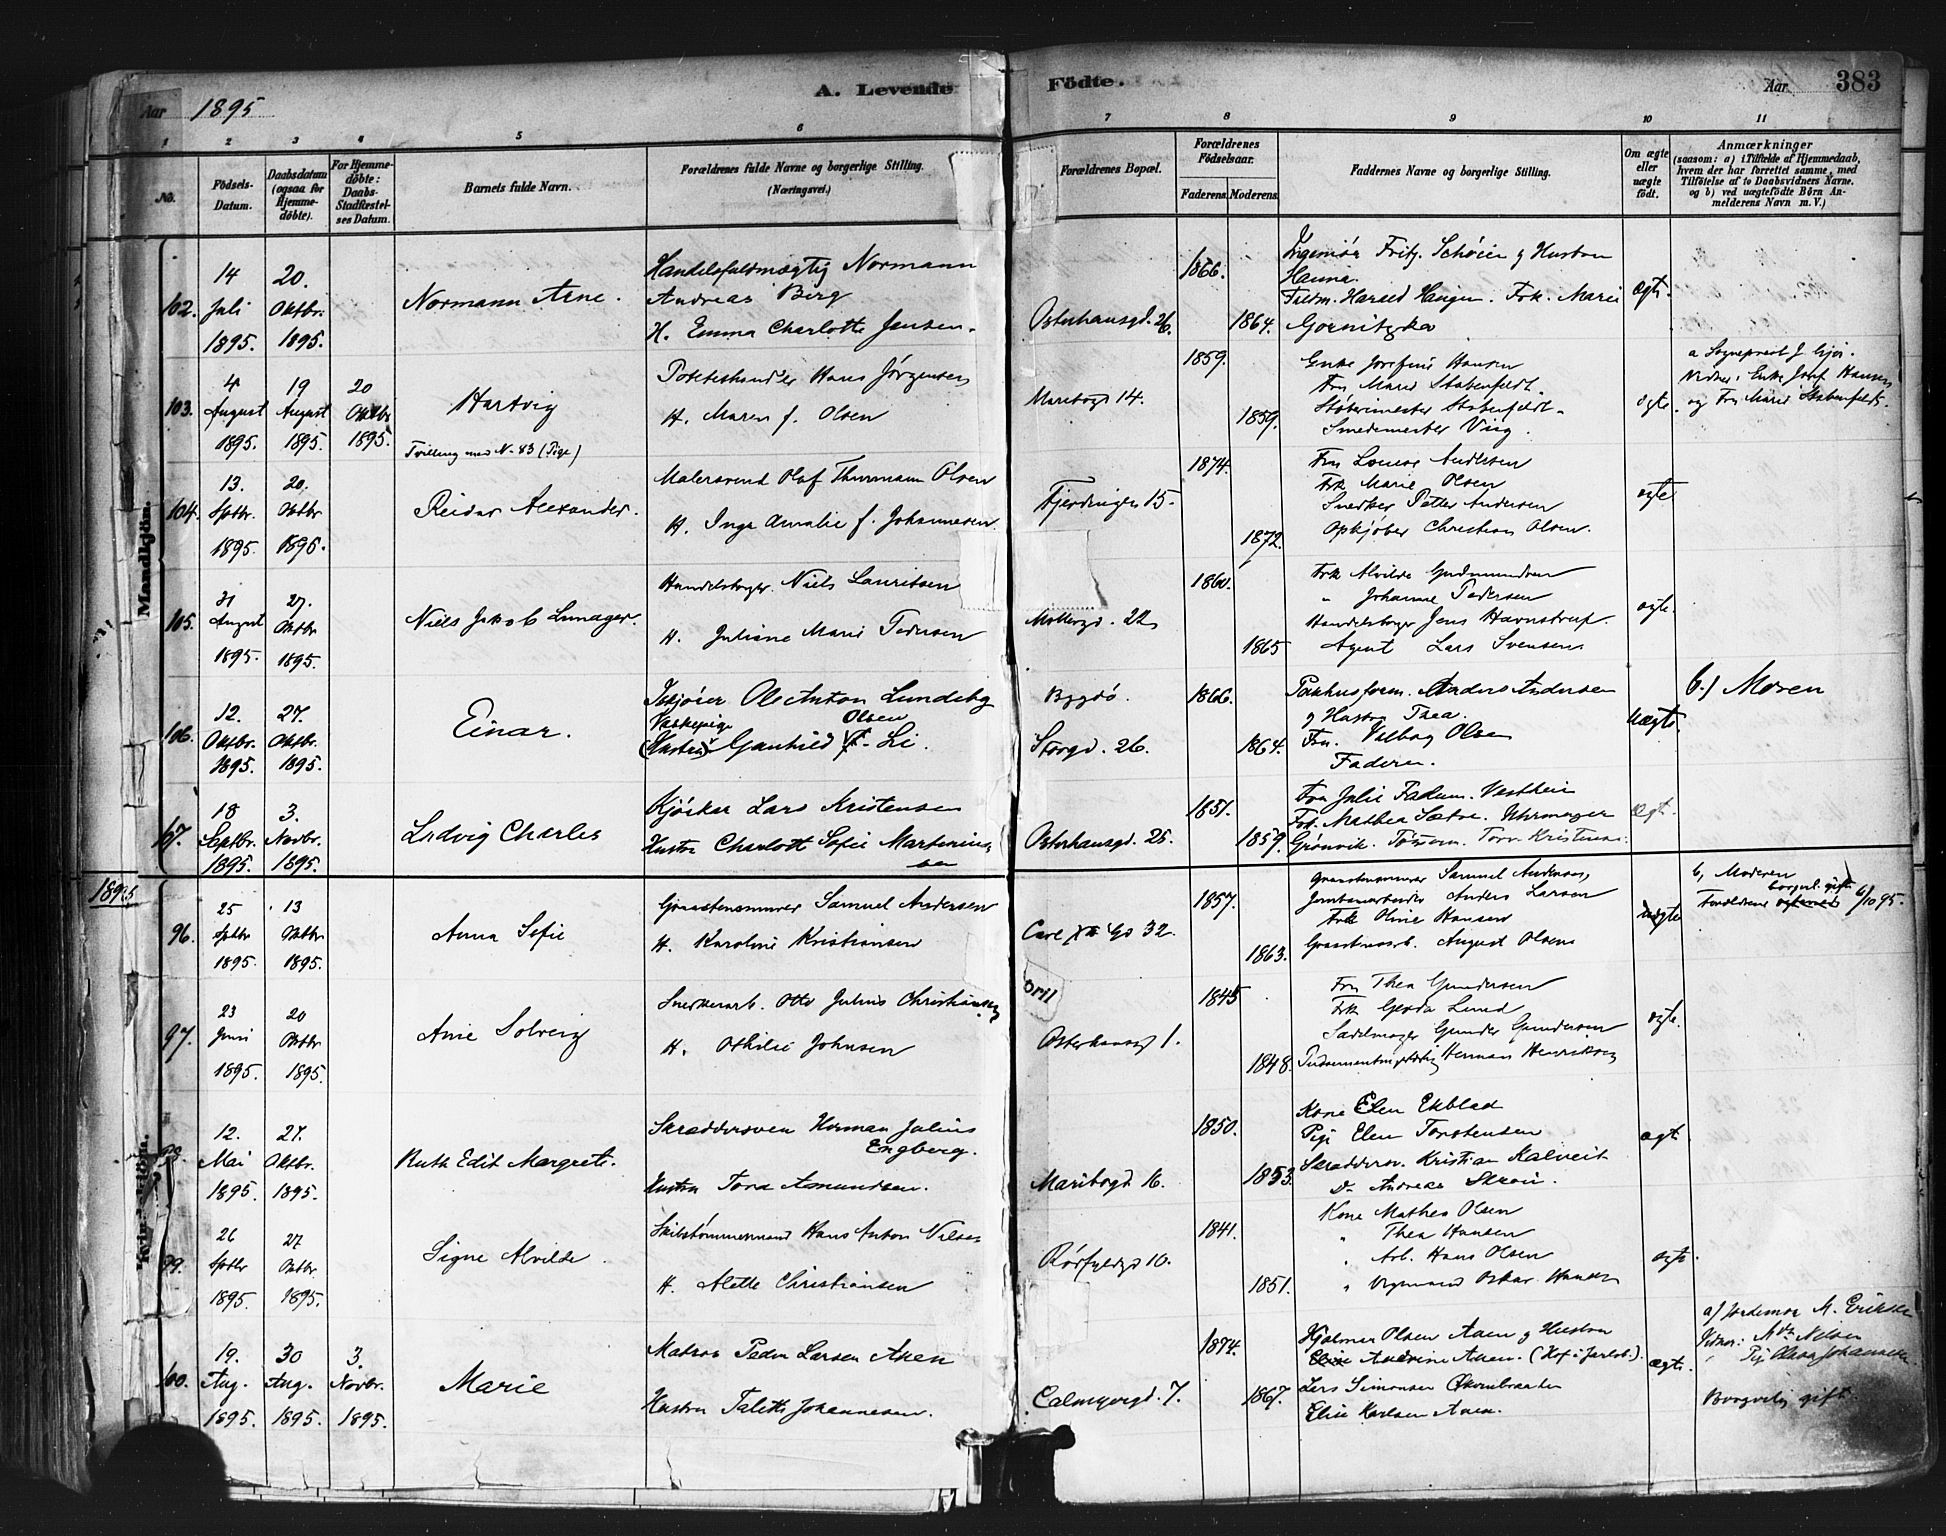 Aar 1895
A. Levende
Födte.
Aar
383
1 2 3 4 5 6 7 8 9 10 11
No.
Födsels-Datum.
Daabsdatum (ogsaa for Hjemme-döbte).
For Hjemme-döbte: Daabs-Stadfæstel-ses Datum.
Barnets fulde Navn.
Forældrenes fulde Navne og borgerlige Stilling.
(Næringsvei.)
Forældrenes Bopæl.
Forældrenes Födselsaar.
Faderens. Moderens.
Faddernes Navne og borgerlige Stilling.
Om ægte eller uægte födt.
Anmærkninger
(saasom: a) i Tilfælde af Hjemmedaab,
hvem der har forrettet samme, med
Tilföielse af to Daabsvidners Navne.
og b) ved uægtefödte Börn An-
melderens Navn m. V.)
Mandkjön.
102.
14 Juli 1895.
20. Oktbr. 1895.
Normann Arne.
Handelsfuldmægtig Normann
Andreas Berg
H. Emma Charlotte Jensen.
Osterhausgd. 26.
1866.
1864.
Ingeniör Fritz Schöien og Hustru
Hanna.
Fuldm. Harald Haugen. Frk. Marie
Gornitzka
Ægte.
103.
4 August 1895
19 August 1895
20 Oktbr 1895.
Hartvig
Tvilling med N. 83 (Pige)
Potteshandler Hans Jörgensen
H. Maren f. Olsen
Maribogd 14.
1859.
1859.
Enke Josefine Hansen
Fru Marie Stabenfeldt.
Støberimester Stabenfeldt.
Smedemester Viig.
ægte.
a Sogneprest J.
Vidner: Enke Josf Hansen
og Fru Marie Stabenfeldt.
104.
13. Sptbr. 1895.
20. Oktbr 1895.
Reidar Alexander.
Malersvend Olaf Thurmann Olsen
H. Inga Amalie f. Johannesen.
Fjerdingen 15.
1874.
1872.
Fru Lovise Andersen
Frk Marie Olsen
Snedker Petter Andersen
Opkjøber Christian Olsen.
ægte
105.
31 August 1895.
27. Oktbr 1895.
Niels Jakob Lunager.
Handelsborger Niels Lauritsen
H. Juliane Marie Pedersen
Møllergd. 22
1860.
1865
Frk Alvilde Gudmundsen
" Johanne Pedersen
Handelsborger Jens Havnstrup.
Agent Lars Svensen
ægte.
106.
12. Oktbr. 1895.
27. Oktbr. 1895.
Einar.
Ole Anton Lundeby
Vaskepige Olsen
(Hustru) Gunhild f. Li.
Bygdö.
Storgd. 26.
1866.
1864.
Pakhusform. Anders Andersen
og Hustru Thea.
Fru. Valborg Olsen
Faderen.
Uægte.
b.) Moren
107.
18 Septbr. 1895.
3. Novbr. 1895.
Ludvig Charles
Kjörkar Lars Kristensen
Hustru Charlott Sofie Martinius
sen
Osterhausgd. 25.
1851.
1859.
Fru Julie Fadum. Vestheim
Frk. Mathea Sætre. Uhrmager
Grönvik. Kristensen.
ægt.
1895
Kvindekjön.
96.
25 Sptbr 1895.
13 Oktbr 1895.
Anna Sofie
Granstensmurer Samuel Andersen
H. Karoline Kristiansen
Carl XII Gd 32.
1857.
1863.
Granstensmurer Samuel Andersen,
Jernbanearbeider Anders Larsen
Frk Oline Hansen
Granstensarb. August Olsen
uægte
b, Moderen
borgerl. gift
Forældrene 6/10 95.
97.
23 Juni 1895.
20 Oktbr 1895.
Anne Solveig
Snedkerarb. Otto Julius Christiansen
H. Othilie Johnsen
April
Osterhausgd 1.
1845
1848.
Fru Thea Gundersen
Frk Gerda Lund
Sadelmager Gunder Gundersen
Herman Henriksen
ægte.
98.
12. Mai 1895.
27. Oktbr. 1895.
Ruth Edit Margrete.
Skræddersven Herman Julius
Engberg.
Hustru Tora Amundsen.
Maribogd 16.
1850.
1853.
Kone Elen Ekblad
Pige Elen Torstensen
Skræddersv. Kristian Kalveit
Do Andreas Skröii.
ægt
99.
26 Sptbr 1895.
27 Oktbr 1895.
Signe Alvilde.
Skibstømmermand Hans Anton Nilsen
H. Alette Christiansen
Rørfyldgd 10.
1841.
1851.
Kone Mathea Olsen
" Thea Hansen
" Arb. Hans Olsen
" Vognmand Oskar Hansen
ægte.
100.
19. Aug. 1895.
30 Aug. 1895.
3. Novbr. 1895.
Marie
Matros Peder Larsen Aaen
Hustru Talette Johannesen.
Calmeyergd. 7.
1874.
1867.
Hjalmar Olsen Aaen og Hustru
Andrine Aaen. (Hof i Jarlsb.).
Lars Simonsen
Elise Karlsen Aaen.
ægte.
a) Jordemor M. Eriksen
Vidner: Mdm Nilsen
" Pige Johannesen
Borgerlig gift.